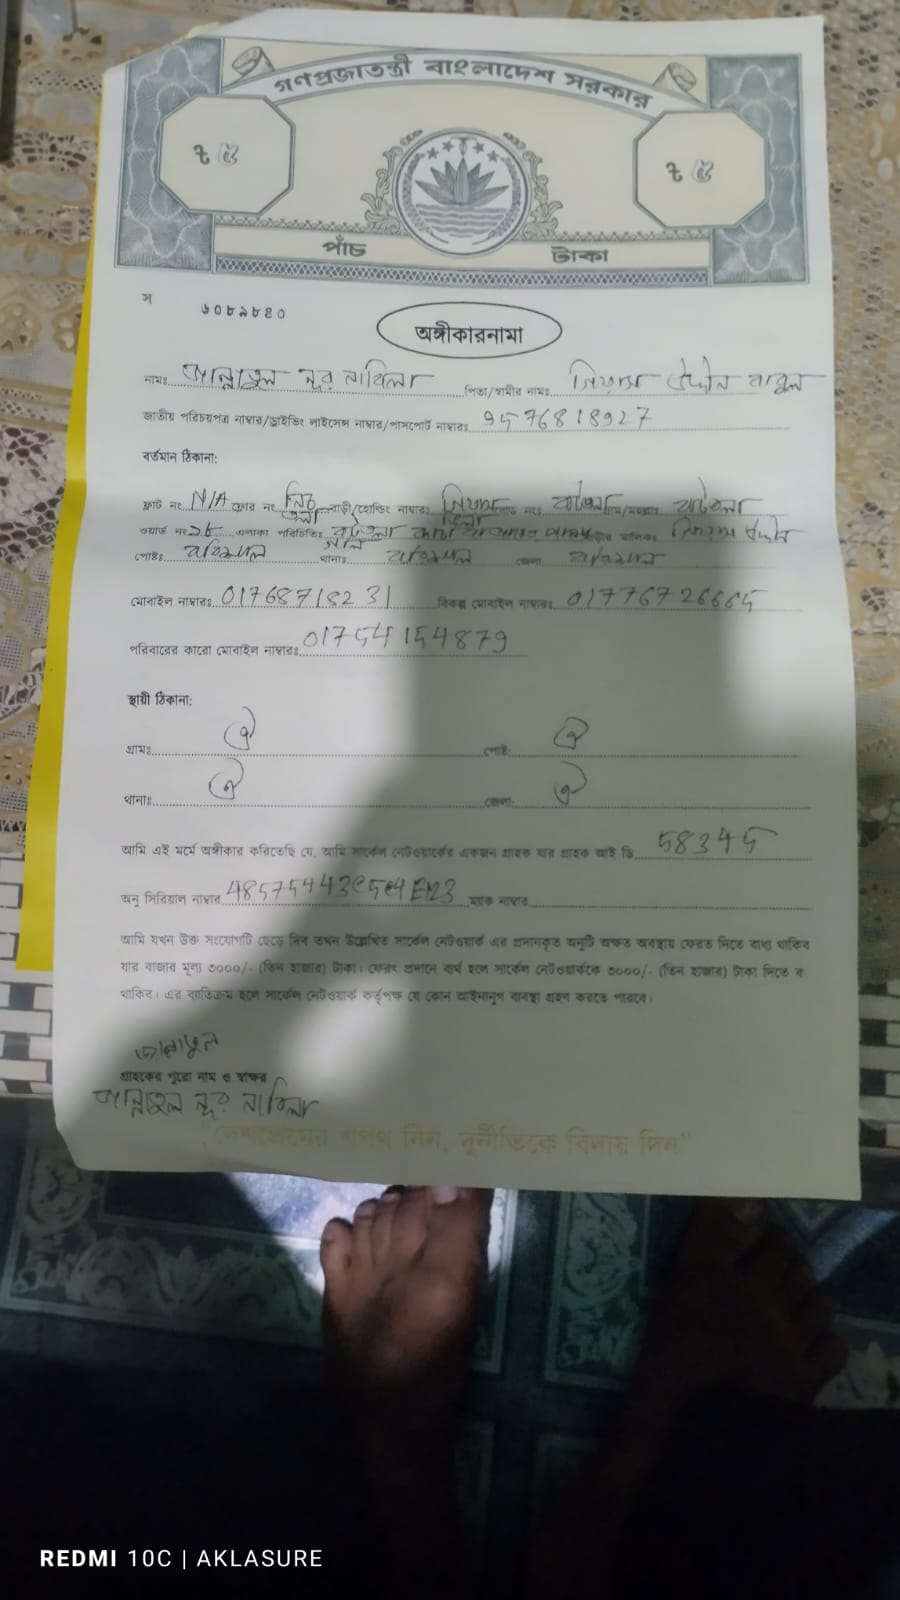 গণপ্রজাতন্ত্রী বাংলাদেশ সরকার
৳ ৫ ৳ ৫
পাঁচ টাকা
স ৬০৮৯৮৪০
অঙ্গীকারনামা
নামঃ জান্নাতুল নূর নাবিলা পিতা/স্বামীর নামঃ উদ্দীন বাবুল
জাতীয় পরিচয়পত্র নাম্বার/ড্রাইভিং লাইসেন্স নাম্বার/পাসপোর্ট নাম্বারঃ 9576818927
বর্তমান ঠিকানা:
ফ্লাট নং N/A ফ্লোর নং নিচ তলা বাড়ী/হোল্ডিং নাম্বারঃ রোড নংঃ বটতলা গ্রাম/মহল্লাঃ বটতলা
ওয়ার্ড নংঃ এলাকা পরিচিতিঃ বটতলা বাড়ীর মালিকঃ উদ্দীন
পোষ্টঃ বরিশাল থানাঃ বরিশাল জেলা বরিশাল
মোবাইল নাম্বারঃ 01768718231 বিকল্প মোবাইল নাম্বারঃ 01776726665
পরিবারের কারো মোবাইল নাম্বারঃ 01754154879
স্থায়ী ঠিকানা:
গ্রামঃ ঐ পোষ্ট: ঐ
থানাঃ ঐ জেলা: ঐ
আমি এই মর্মে অঙ্গীকার করিতেছি যে, আমি সার্কেল নেটওয়ার্কের একজন গ্রাহক যার গ্রাহক আই ডি 58345
অনু সিরিয়াল নাম্বার ম্যাক নাম্বার
আমি যখন উক্ত সংযোগটি ছেড়ে দিব তখন উল্লেখিত সার্কেল নেটওয়ার্ক এর প্রদানকৃত অনুটি অক্ষত অবস্থায় ফেরত দিতে বাধ্য থাকিব
যার বাজার মূল্য ৩০০০/- (তিন হাজার) টাকা। ফেরৎ প্রদানে ব্যর্থ হলে সার্কেল নেটওয়ার্ককে ৩০০০/- (তিন হাজার) টাকা দিতে ব
থাকিব। এর ব্যতিক্রম হলে সার্কেল নেটওয়ার্ক কর্তৃপক্ষ যে কোন আইনানুগ ব্যবস্থা গ্রহণ করতে পারবে।
জান্নাতুল
গ্রাহকের পুরো নাম ও স্বাক্ষর
জান্নাতুল নূর নাবিলা
"দেশপ্রেমের শপথ নিন, দুর্নীতিকে বিদায় দিন"
REDMI 10C | AKLASURE